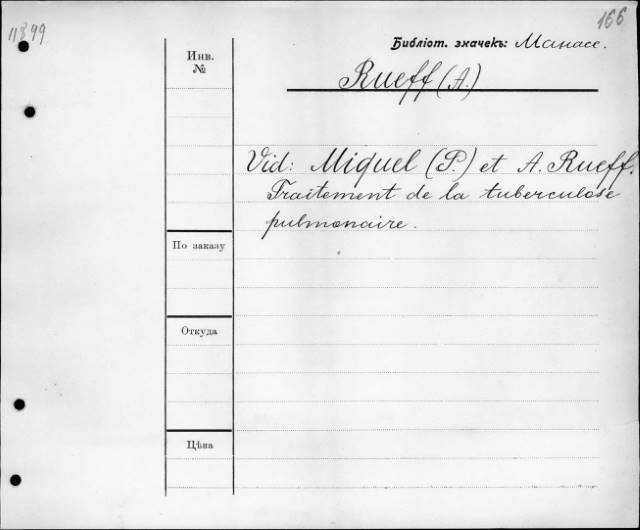 11899
166
Библіот. значекъ: Манасс.
Инв.
№
Rueff (A.)
Vid: Miquel (P.) et A. Rueff.
Traitement de la tuberculose
pulmonaire.
По заказу
Откуда
Цѣна